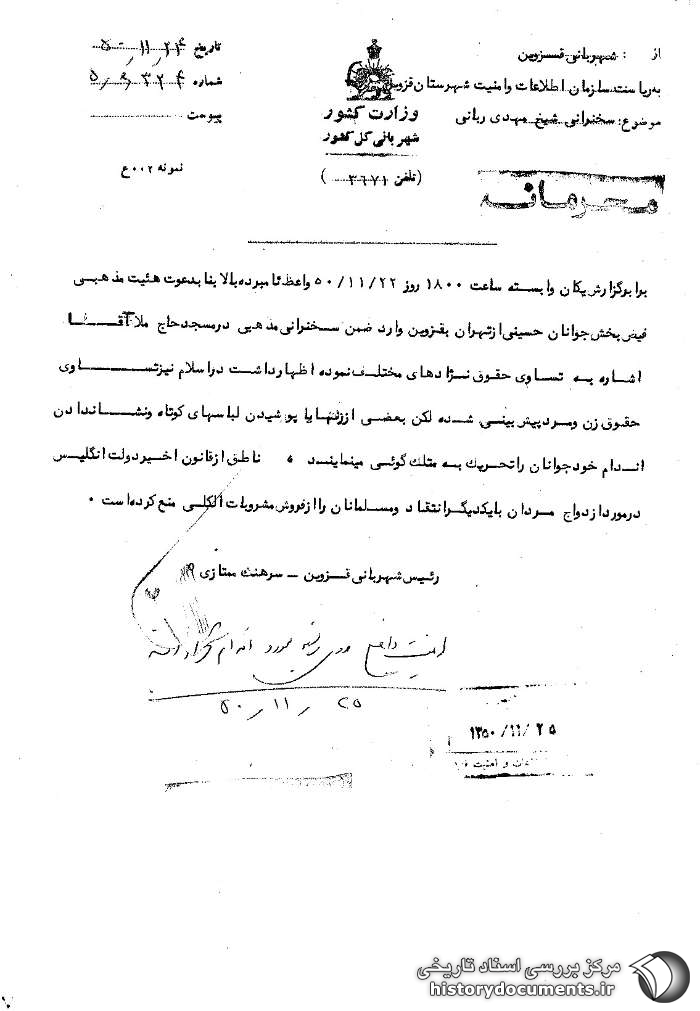 از : شهربانی قزوین
به ریاست سازمان اطلاعات و امنیت شهرستان قزوین
موضوع: سخنرانی شیخ مهدی ربانی
وزارت کشور
شهربانی کل کشور
(تلفن ۳۶۷۱)
تاریخ ۵۰/۱۱/۲۴
شماره ۵/۹۳۲۴
پیوست
نمونه ۰۰۲ ع
محرمانه
برابر گزارش یکان وابسته ساعت ۱۸۰۰ روز ۵۰/۱۱/۲۲ واعظ نامبرده بالا بنا بدعوت هئیت مذهبی
فیض بخش جوانان حسینی از تهران بقزوین وارد ضمن سخنرانی مذهبی در مسجد حاج ملا آقا
اشاره به تساوی حقوق نژادهای مختلف نموده اظهار داشت در اسلام نیز تساوی
حقوق زن و مرد پیش بینی شده لکن بعضی از زنها با پوشیدن لباسهای کوتاه و نشاندادن
اندام خود جوانان را تحریک به متلک گوئی مینمایند ۰ ناطق از قانون اخیر دولت انگلیس
در مورد ازدواج مردان با یکدیگر انتقاد و مسلمانان را از فروش مشروبات الکلی منع کرده است ۰
رئیس شهربانی قزوین - سرهنگ ممتازی
امنیت داخلی
۵۰/۱۱/۲۵
۱۳۵۰/۱۱/۲۵
و امنیت
مرکز بررسی اسناد تاریخی
historydocuments.ir